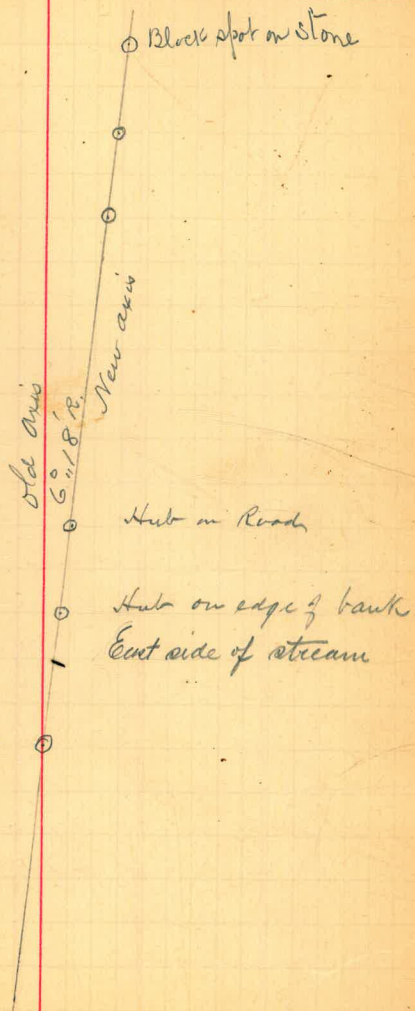 Black spot on Stone
New axis
old axis
6° 18' R.
Hub on Road
Hub on edge of bank
East side of stream